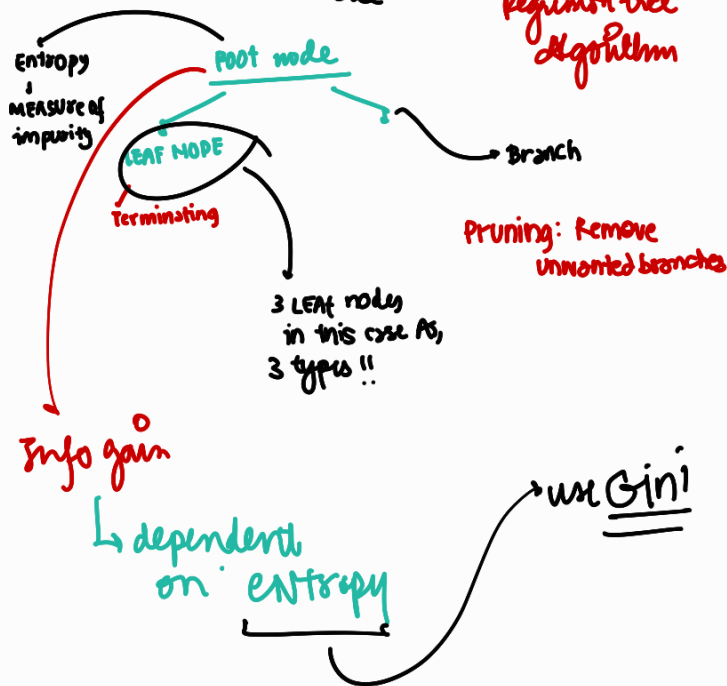 Regression tree
Algorithm
Root node
Entropy
MEASURE of
impurity
LEAF NODE
Terminating
Branch
Pruning: Remove
unwanted branches
3 LEAf nodes
in this case As,
3 types !!
Info gain
dependent
on entropy
use Gini